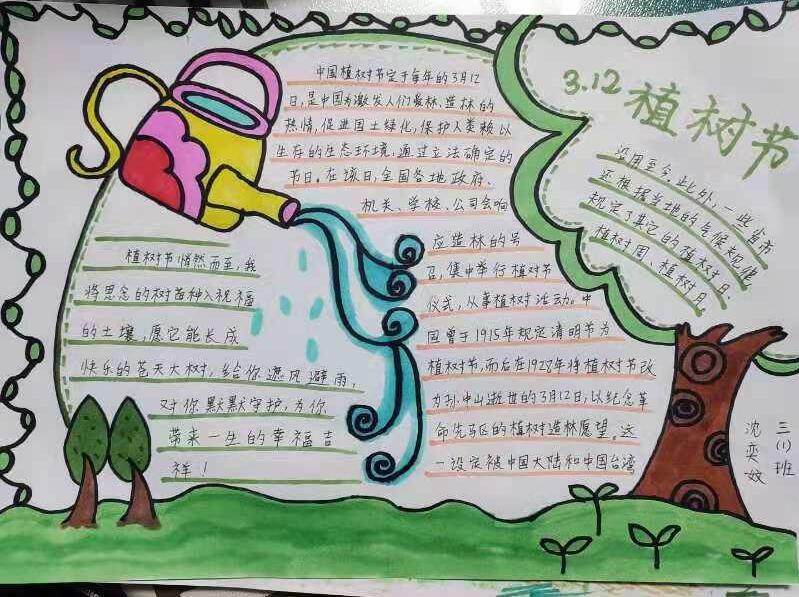 3.12 植树节
中国植树节定于每年的3月12
日，是中国为激发人们爱林、造林的
热情，促进国土绿化，保护人类赖以
生存的生态环境，通过立法确定的
节日。在该日，全国各地政府、
机关、学校、公司会响
应造林的号
召，集中举行植树节
仪式，从事植树活动。中
国曾于1915年规定清明节为
植树节，而后在1928年将植树节改
为孙中山逝世的3月12日，以纪念革
命先驱的植树造林愿望。这
一设定被中国大陆和中国台湾
沿用至今。此外，一些省市
还根据当地的气候和
规定了其它的植树日、
植树周、植树月。
植树节悄然而至，我
将思念的树苗种入祝福
的土壤，愿它能长成
快乐的苍天大树，给你遮风避雨，
对你默默守护，为你
带来一生的幸福吉
祥！
三(1)班
沈奕